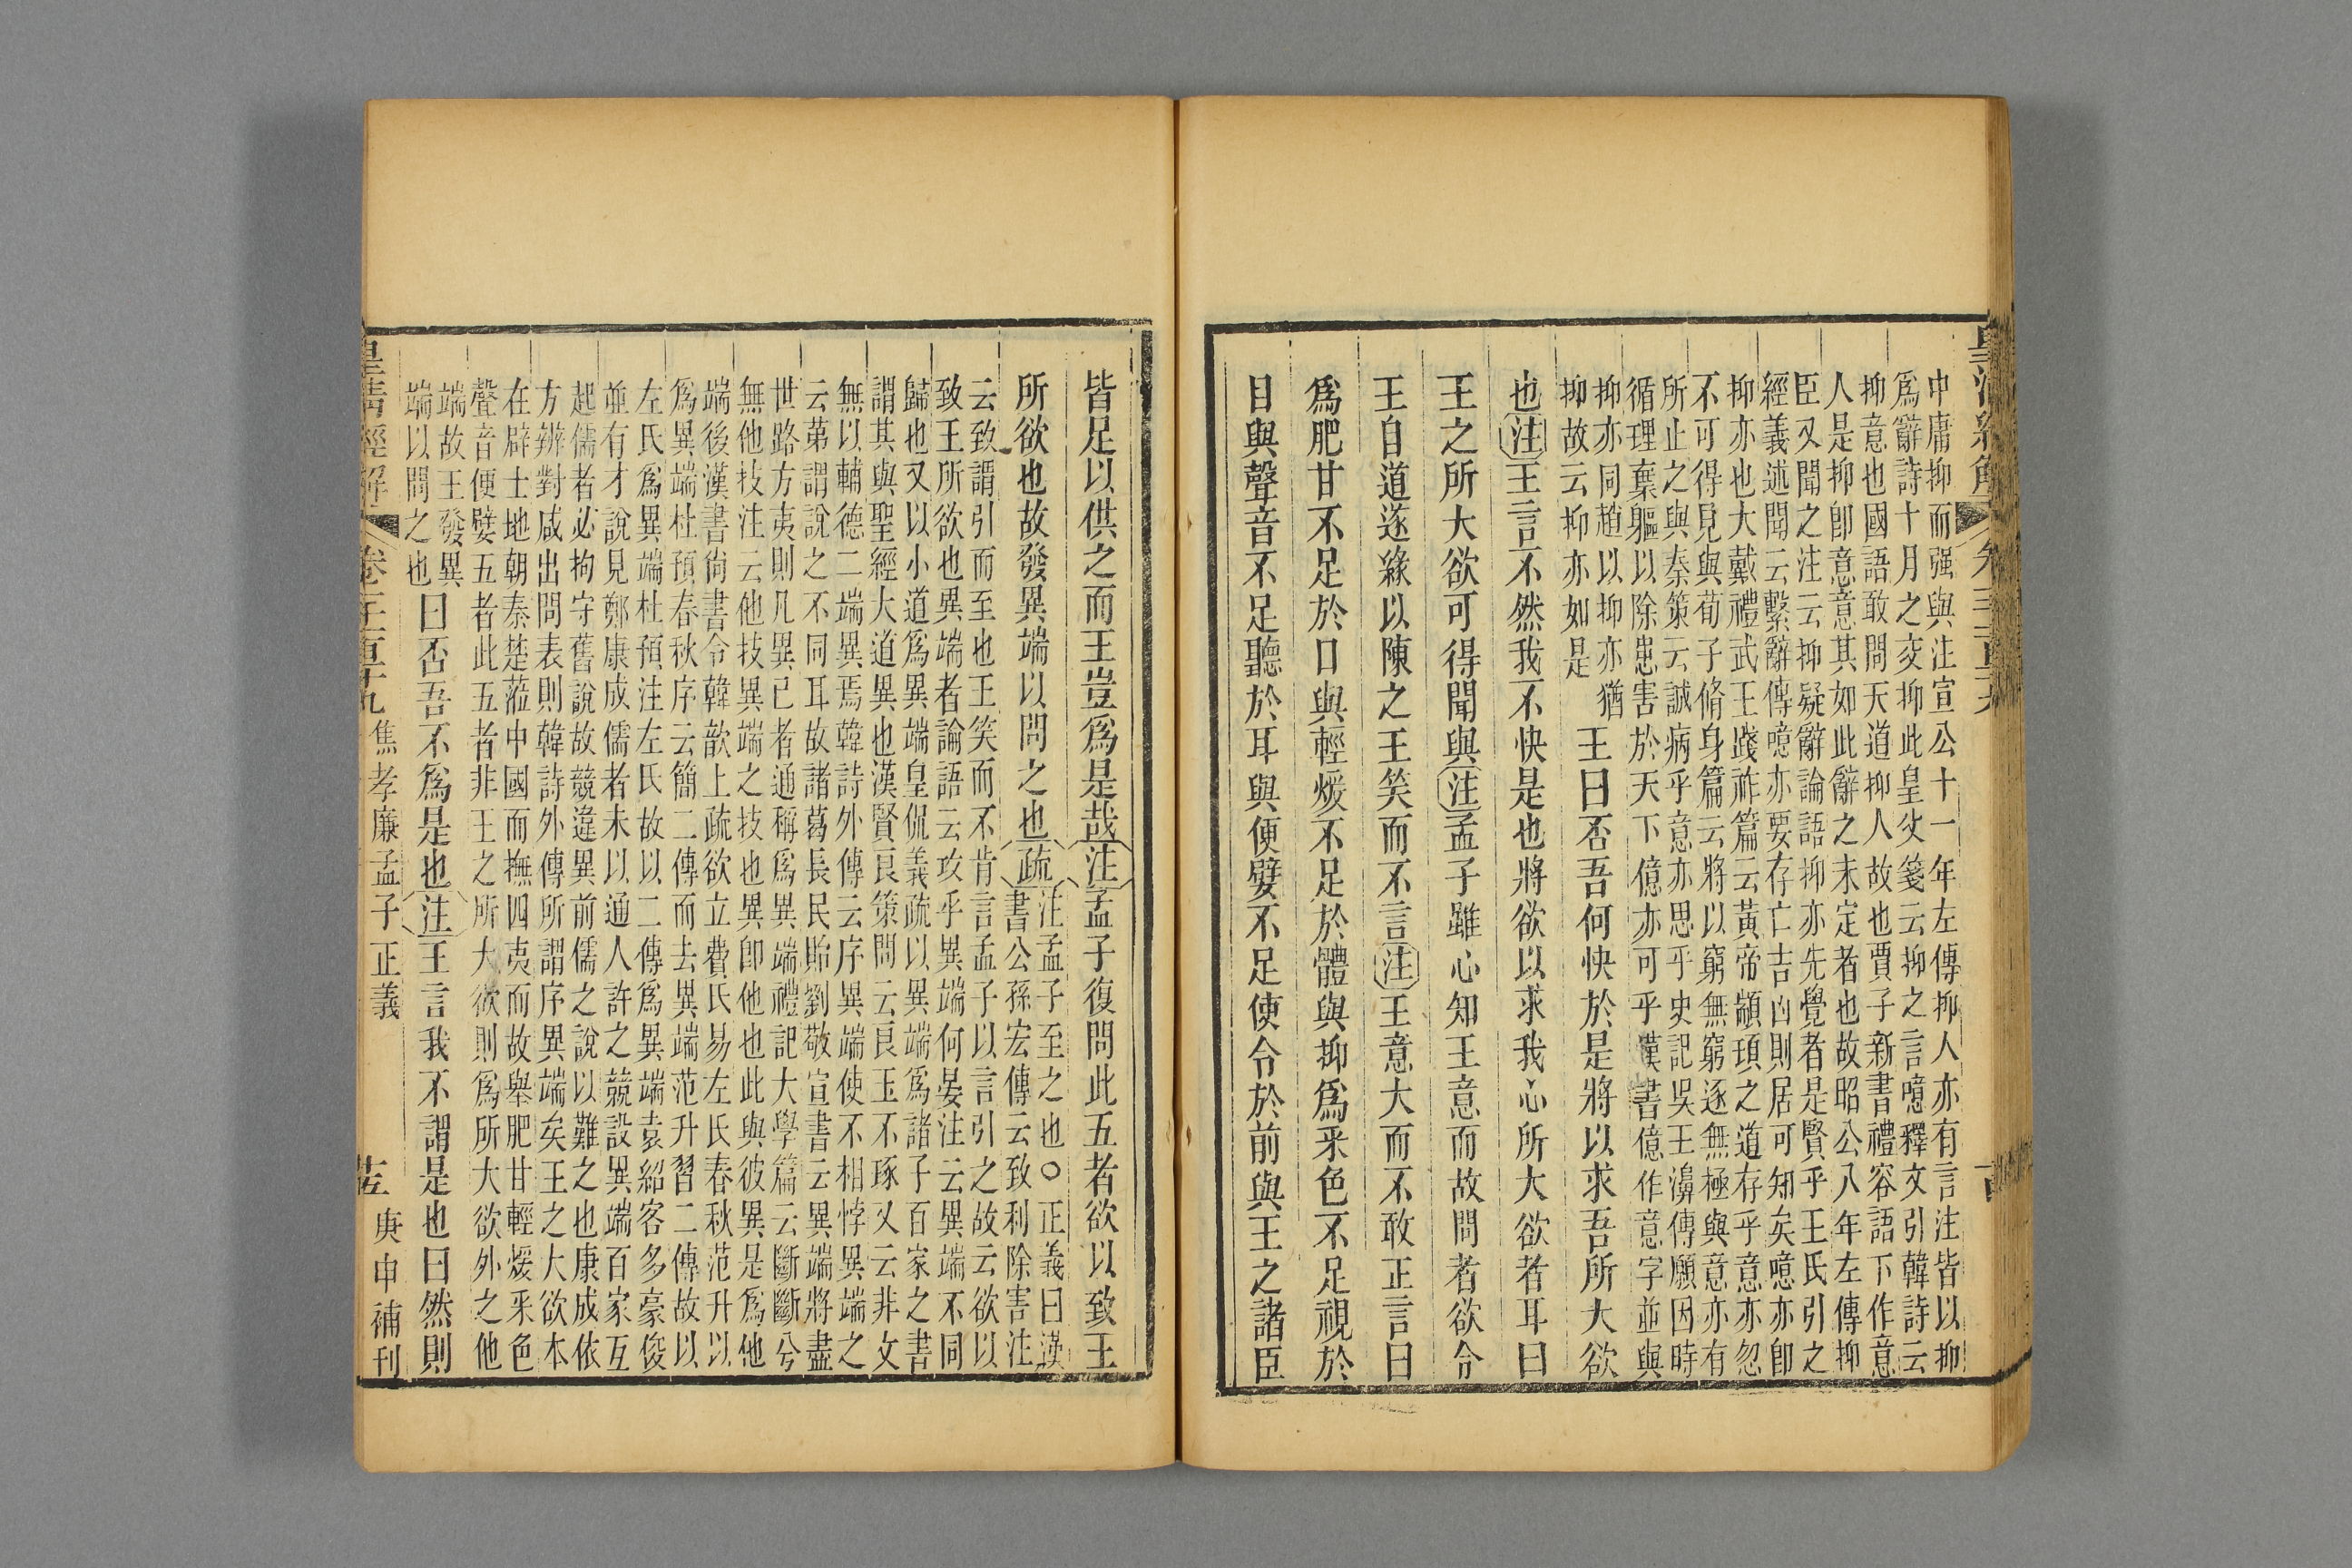 中庸抑而强與注宣公十一年左傳抑人亦有言注皆以抑
爲辭詩十月之交抑此皇父箋云抑之言噫釋文引韓詩云
抑意也國語敢問天道抑人故也賈子新書禮容語下作意
人是抑卽意意其如此辭之未定者也故昭公八年左傳抑
臣又聞之注云抑疑辭論語抑亦先覺者是賢乎王氏引之
經義述聞云繫辭傳噫亦要存亡吉凶則居可知矣噫亦卽
抑亦也大戴禮武王踐祚篇云黃帝顓頊之道存乎意亦忽
不可得見與荀子脩身篇云將以窮無窮逐無極與意亦有
所止之與秦策云誠病乎意亦思乎史記吳王濞傳願因時
循理棄軀以除患害於天下億亦可乎漢書億作意字並與
抑亦同趙以抑亦猶
抑故云抑亦如是
王曰否吾何快於是將以求吾所大欲
也注王言不然我不快是也將欲以求我心所大欲者耳曰
王之所大欲可得聞與注孟子雖心知王意而故問者欲令
王自道遂緣以陳之王笑而不言注王意大而不敢正言曰
爲肥甘不足於口與輕煖不足於體與抑爲采色不足視於
目與聲音不足聽於耳與便嬖不足使令於前與王之諸臣
皆足以供之而王豈爲是哉注孟子復問此五者欲以致王
所欲也故發異端以問之也疏
注孟子至之也○正義曰漢
書公孫宏傳云致利除害注
云致謂引而至也王笑而不肯言孟子以言引之故云欲以
致王所欲也異端者論語云攻乎異端何晏注云異端不同
歸也又以小道爲異端皇侃義疏以異端爲諸子百家之書
謂其與聖經大道異也漢賢良策問云良玉不琢又云非文
無以輔德二端異焉韓詩外傳云序異端使不相悖異端之
云苐謂說之不同耳故諸葛長民貽劉敬宣書云異端將盡
世路方夷則凡異已者通稱爲異端禮記大學篇云斷斷兮
無他技注云他技異端之技也異卽他也此與彼異是爲他
端後漢書尙書令韓歆上疏欲立費氏易左氏春秋范升以
爲異端杜預春秋序云簡二傳而去異端范升習二傳故以
左氏爲異端杜預注左氏故以二傳爲異端袁紹客多豪俊
並有才說見鄭康成儒者未以通人許之競設異端百家互
起儒者必拘守舊說故競違異前儒之說以難之也康成依
方辨對咸出問表則韓詩外傳所謂序異端矣王之大欲本
在辟土地朝秦楚蒞中國而撫四夷而故舉肥甘輕煖采色
聲音便嬖五者此五者非王之所大欲則爲所大欲外之他
端故王發異
端以問之也
曰否吾不爲是也注王言我不謂是也曰然則
皇淸經解 卷三百十九 焦孝廉孟子正義 庚申補刊